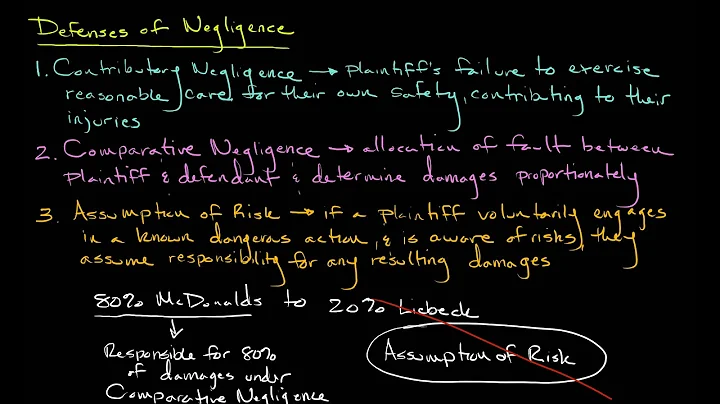 Defenses of Negligence
1. Contributory Negligence → plaintiff's failure to exercise
reasonable care for their own safety, contributing to their
injuries
2. Comparative Negligence → allocation of fault between
plaintiff & defendant & determine damages proportionately
3. Assumption of Risk → if a plaintiff voluntarily engages
in a known dangerous action, & is aware of risks, they
assume responsibility for any resulting damages
80% McDonalds to 20% Liebeck
Responsible for 80%
of damages under
Comparative Negligence
Assumption of Risk